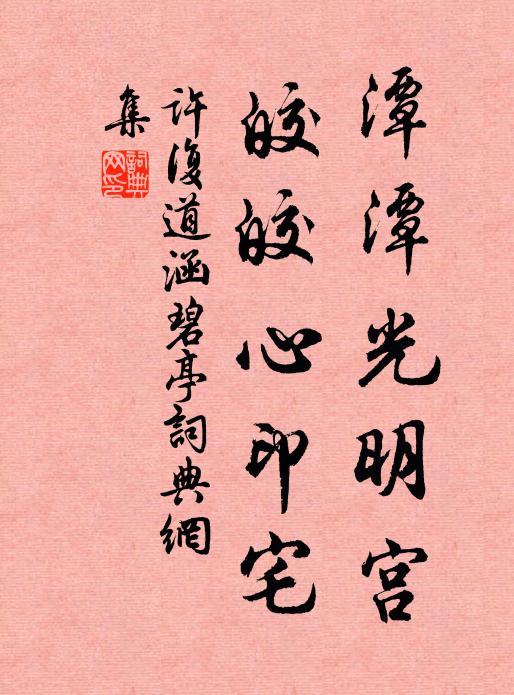 潭潭光明宫
皎皎心印宅
許復道涵碧亭詞典網
集
詞典網印